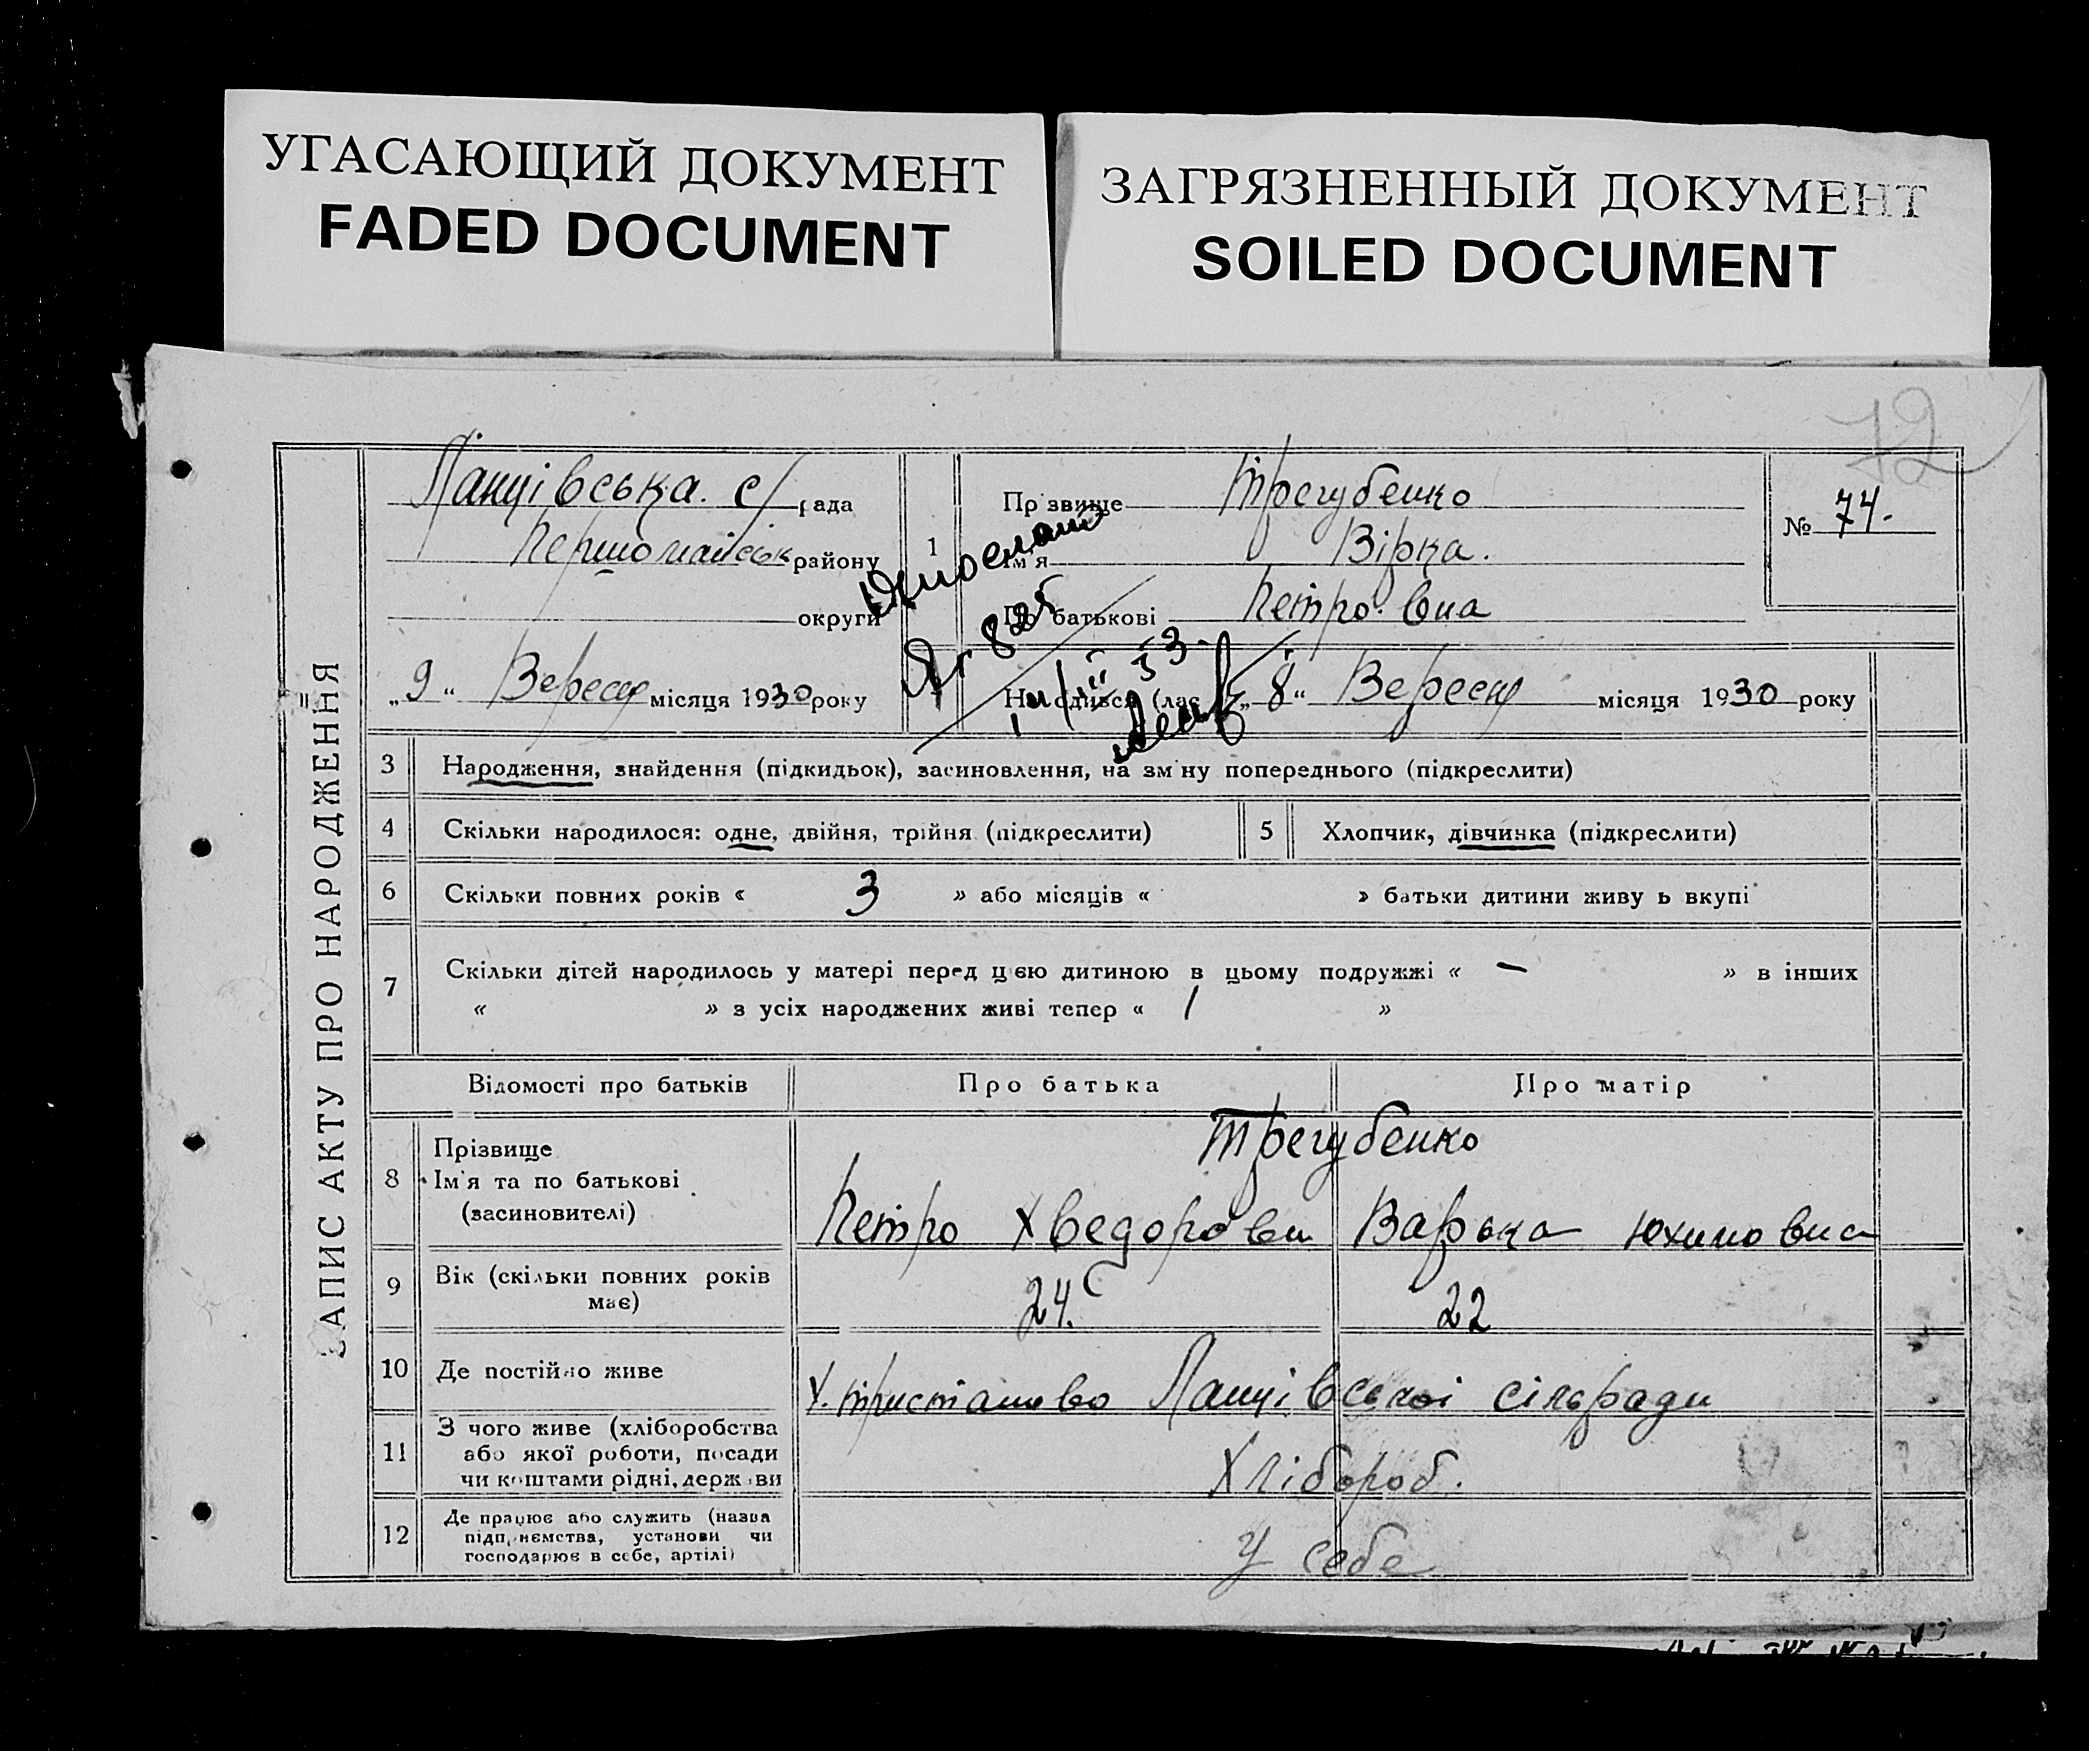 УГАСАЮЩИЙ ДОКУМЕНТ
FADED DOCUMENT
ЗАГРЯЗНЕННЫЙ ДОКУМЕНТ
SOILED DOCUMENT
72
ЗАПИС АКТУ ПРО НАРОДЖЕННЯ
Ланцівська. с/рада
Першомайськ району
округи
„9“ Вересня місяця 1930 року
1
Прізвище Трегубенко
Ім'я Вірка.
По батькові Петровна
№ 74.
№ 825
33.
Народився (лась) „8“ Вересня місяця 1930 року
3 Народження, знайдення (підкидьок), засиновлення, на зміну попереднього (підкреслити)
4 Скільки народилося: одне, двійня, трійня (підкреслити)
5 Хлопчик, дівчинка (підкреслити)
6 Скільки повних років « 3 » або місяців « » батьки дитини живуть вкупі
7 Скільки дітей народилось у матері перед цією дитиною в цьому подружжі « – » в інших
« » з усіх народжених живі тепер « 1 »
Відомості про батьків Про батька Про матір
8 Прізвище
Ім'я та по батькові
(засиновителі)
Трегубенко
Петро Хведорови Варька Юхимовна
9 Вік (скільки повних років
має)
24. 22
10 Де постійно живе
Х. Тристаново Ланцівської сільради
11 З чого живе (хліборобства
або якої роботи, посади
чи коштами рідні, держави
Хлібороб.
12 Де працює або служить (назва
підприємства, установи чи
господарює в себе, артілі)
У себе